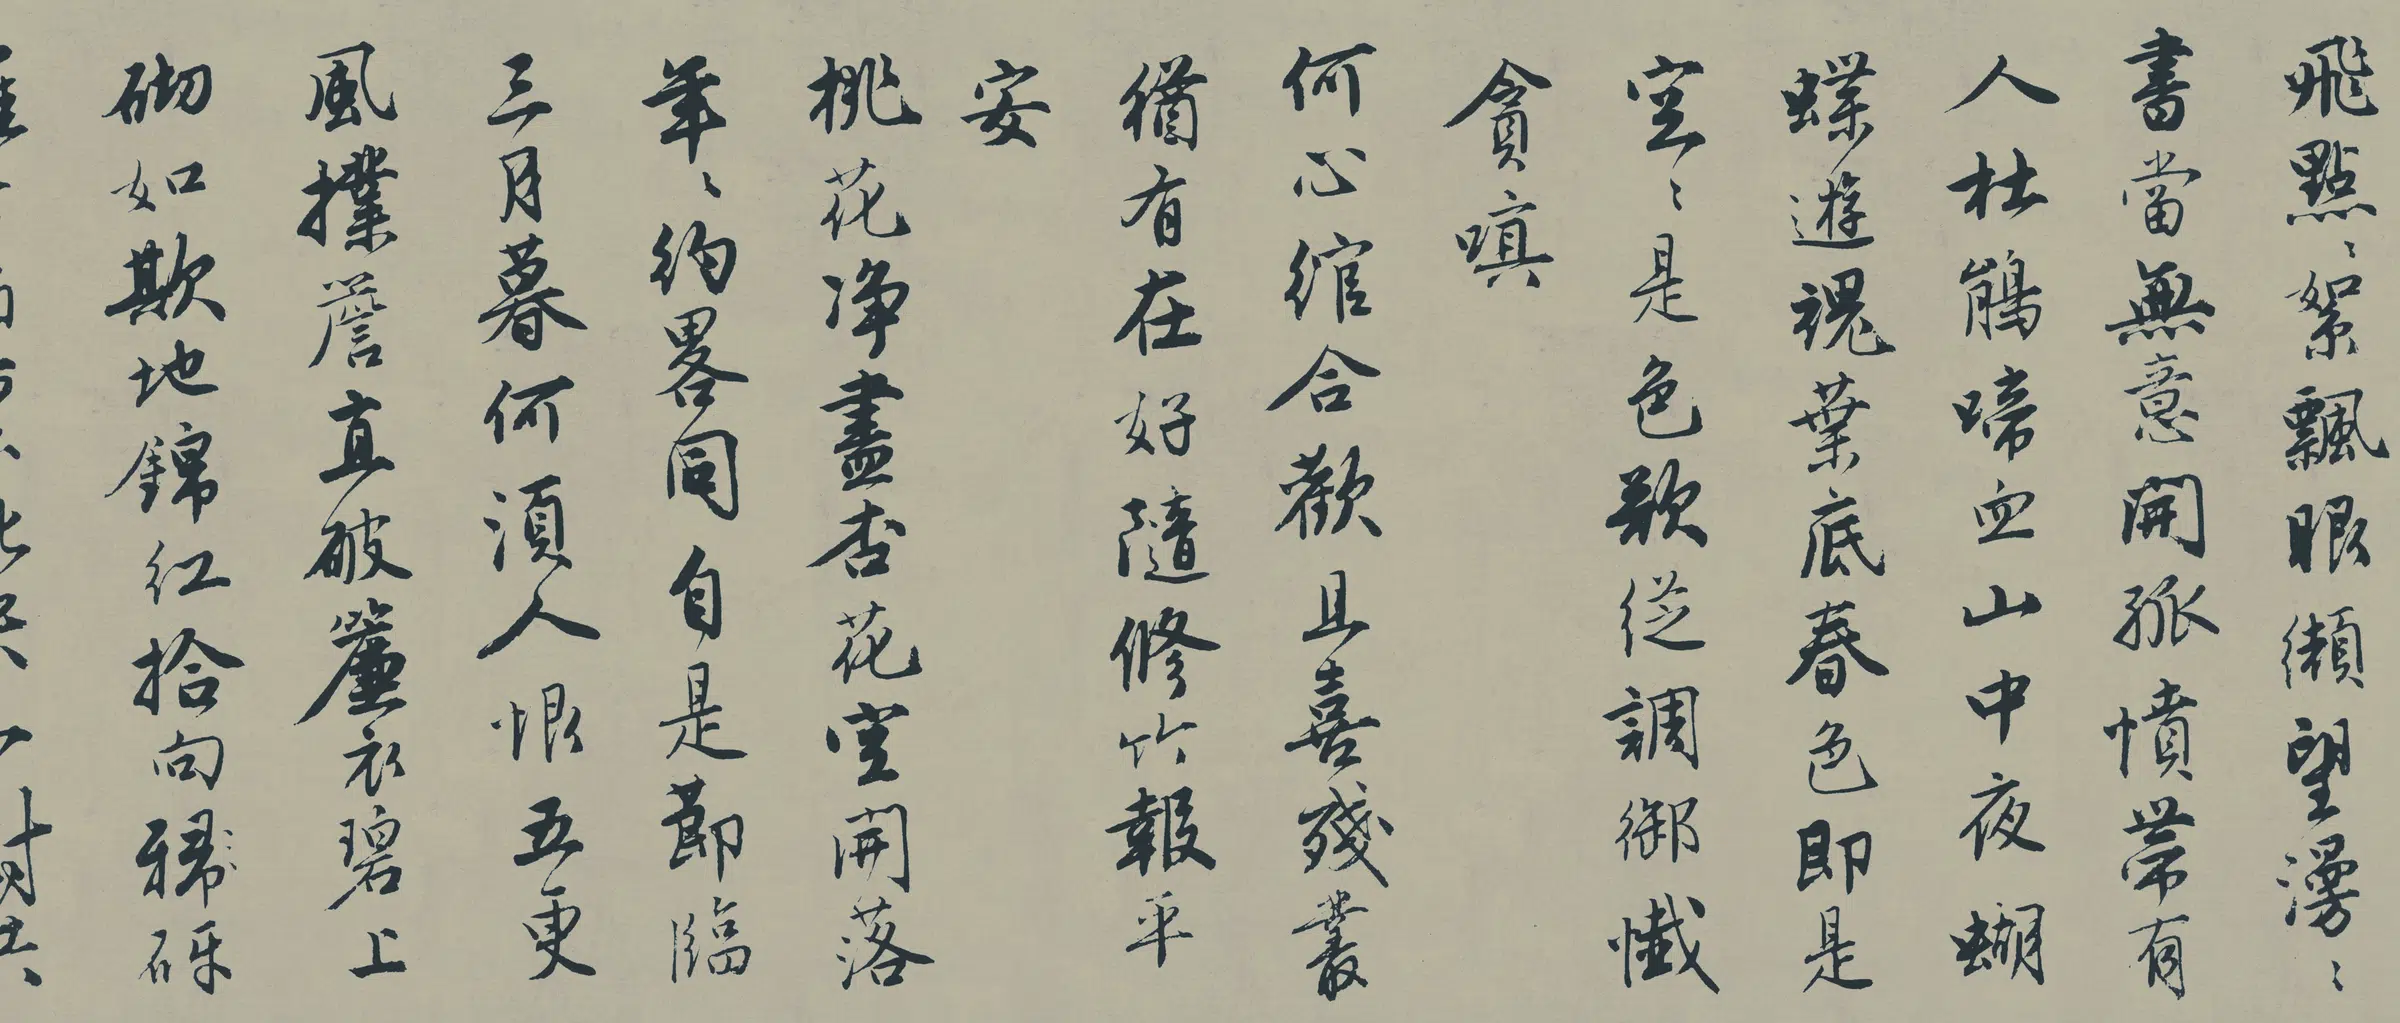 飛點〻絮飄眼纈望漫〻
書當無意開孤憤帶有
人杜鵑啼血山中夜蝴
蝶遊魂葉底春色即是
空〻是色歌從調御懺
貪嗔
何心綰合歡且喜殘叢
猶有在好隨脩竹報平
安
桃花淨盡杏花空開落
年〻約畧同自是節臨
三月暮何須人恨五更
風撲簷直破簾衣碧上
砌如欺地錦紅拾向
砑